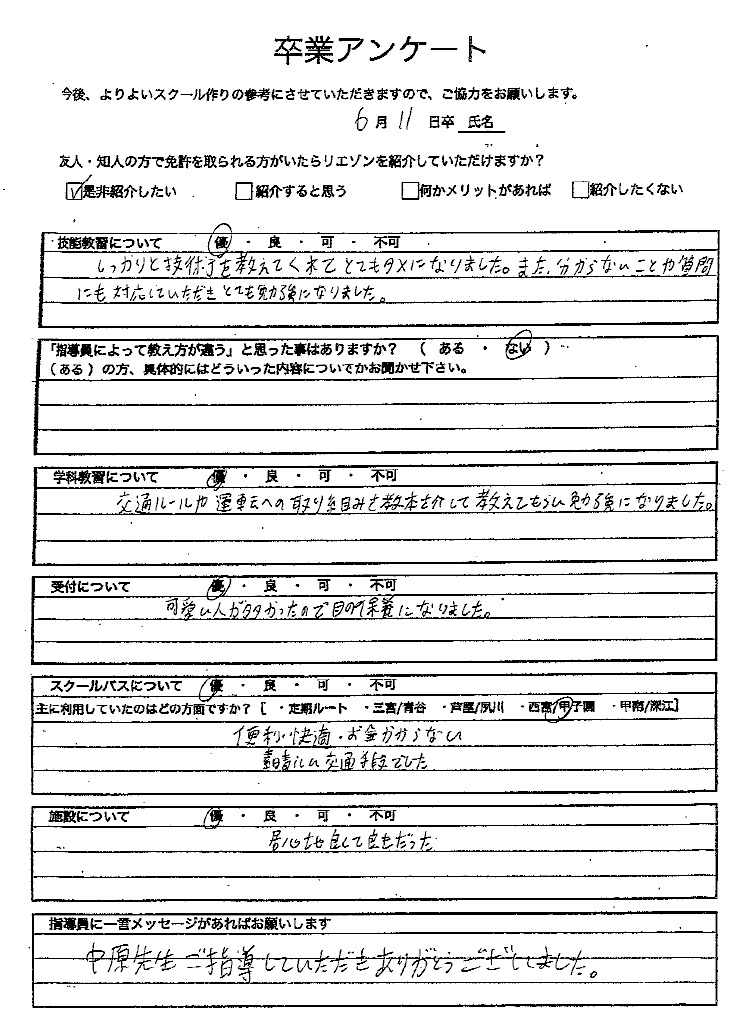 卒業アンケート
今後、よりよいスクール作りの参考にさせていただきますので、ご協力をお願いします。
6月11日卒 氏名
友人・知人の方で免許を取られる方がいたらリエゾンを紹介していただけますか?
是非紹介したい 紹介すると思う 何かメリットがあれば 紹介したくない
技能教習について 優 ・ 良 ・ 可 ・ 不可
しっかりと技術等を教えてくれてとてもタメになりました。また、分からないことや質問
にも対応していただきとても勉強になりました。
「指導員によって教え方が違う」と思った事はありますか? ( ある ・ ない )
(ある)の方、具体的にはどういった内容についてかお聞かせ下さい。
学科教習について 優 ・ 良 ・ 可 ・ 不可
交通ルールや運転への取り組みを教本を介して教えてもらい勉強になりました。
受付について 優 ・ 良 ・ 可 ・ 不可
可愛い人が多かったので目の保養になりました。
スクールバスについて 優 ・ 良 ・ 可 ・ 不可
主に利用していたのはどの方面ですか? [ ・定期ルート ・三宮/青谷 ・芦屋/夙川 ・西宮/甲子園 ・甲南/深江]
便利・快適・お金かからない
素晴らしい交通手段でした
施設について 優 ・ 良 ・ 可 ・ 不可
居心地良くて
指導員に一言メッセージがあればお願いします
中原先生ご指導していただきありがとうございました。